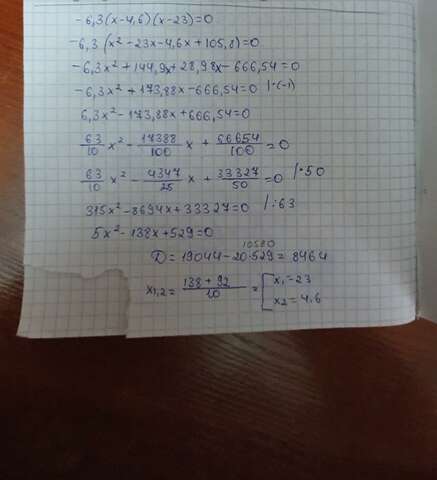 -6,3(x-4,6)(x-23)=0
-6,3(x²-23x-4,6x+105,8)=0
-6,3x²+144,9x+28,98x-666,54=0
-6,3x²+173,88x-666,54=0 |·(-1)
6,3x²-173,88x+666,54=0
63/10 x² - 17388/100 x + 66654/100 = 0
63/10 x² - 4347/25 x + 33327/50 = 0 |·50
315x²-8694x+33327=0 |:63
5x²-138x+529=0
10580
D=19044-20·529=8464
x1,2 = 138+92/10 = [x1=23
x2=4,6